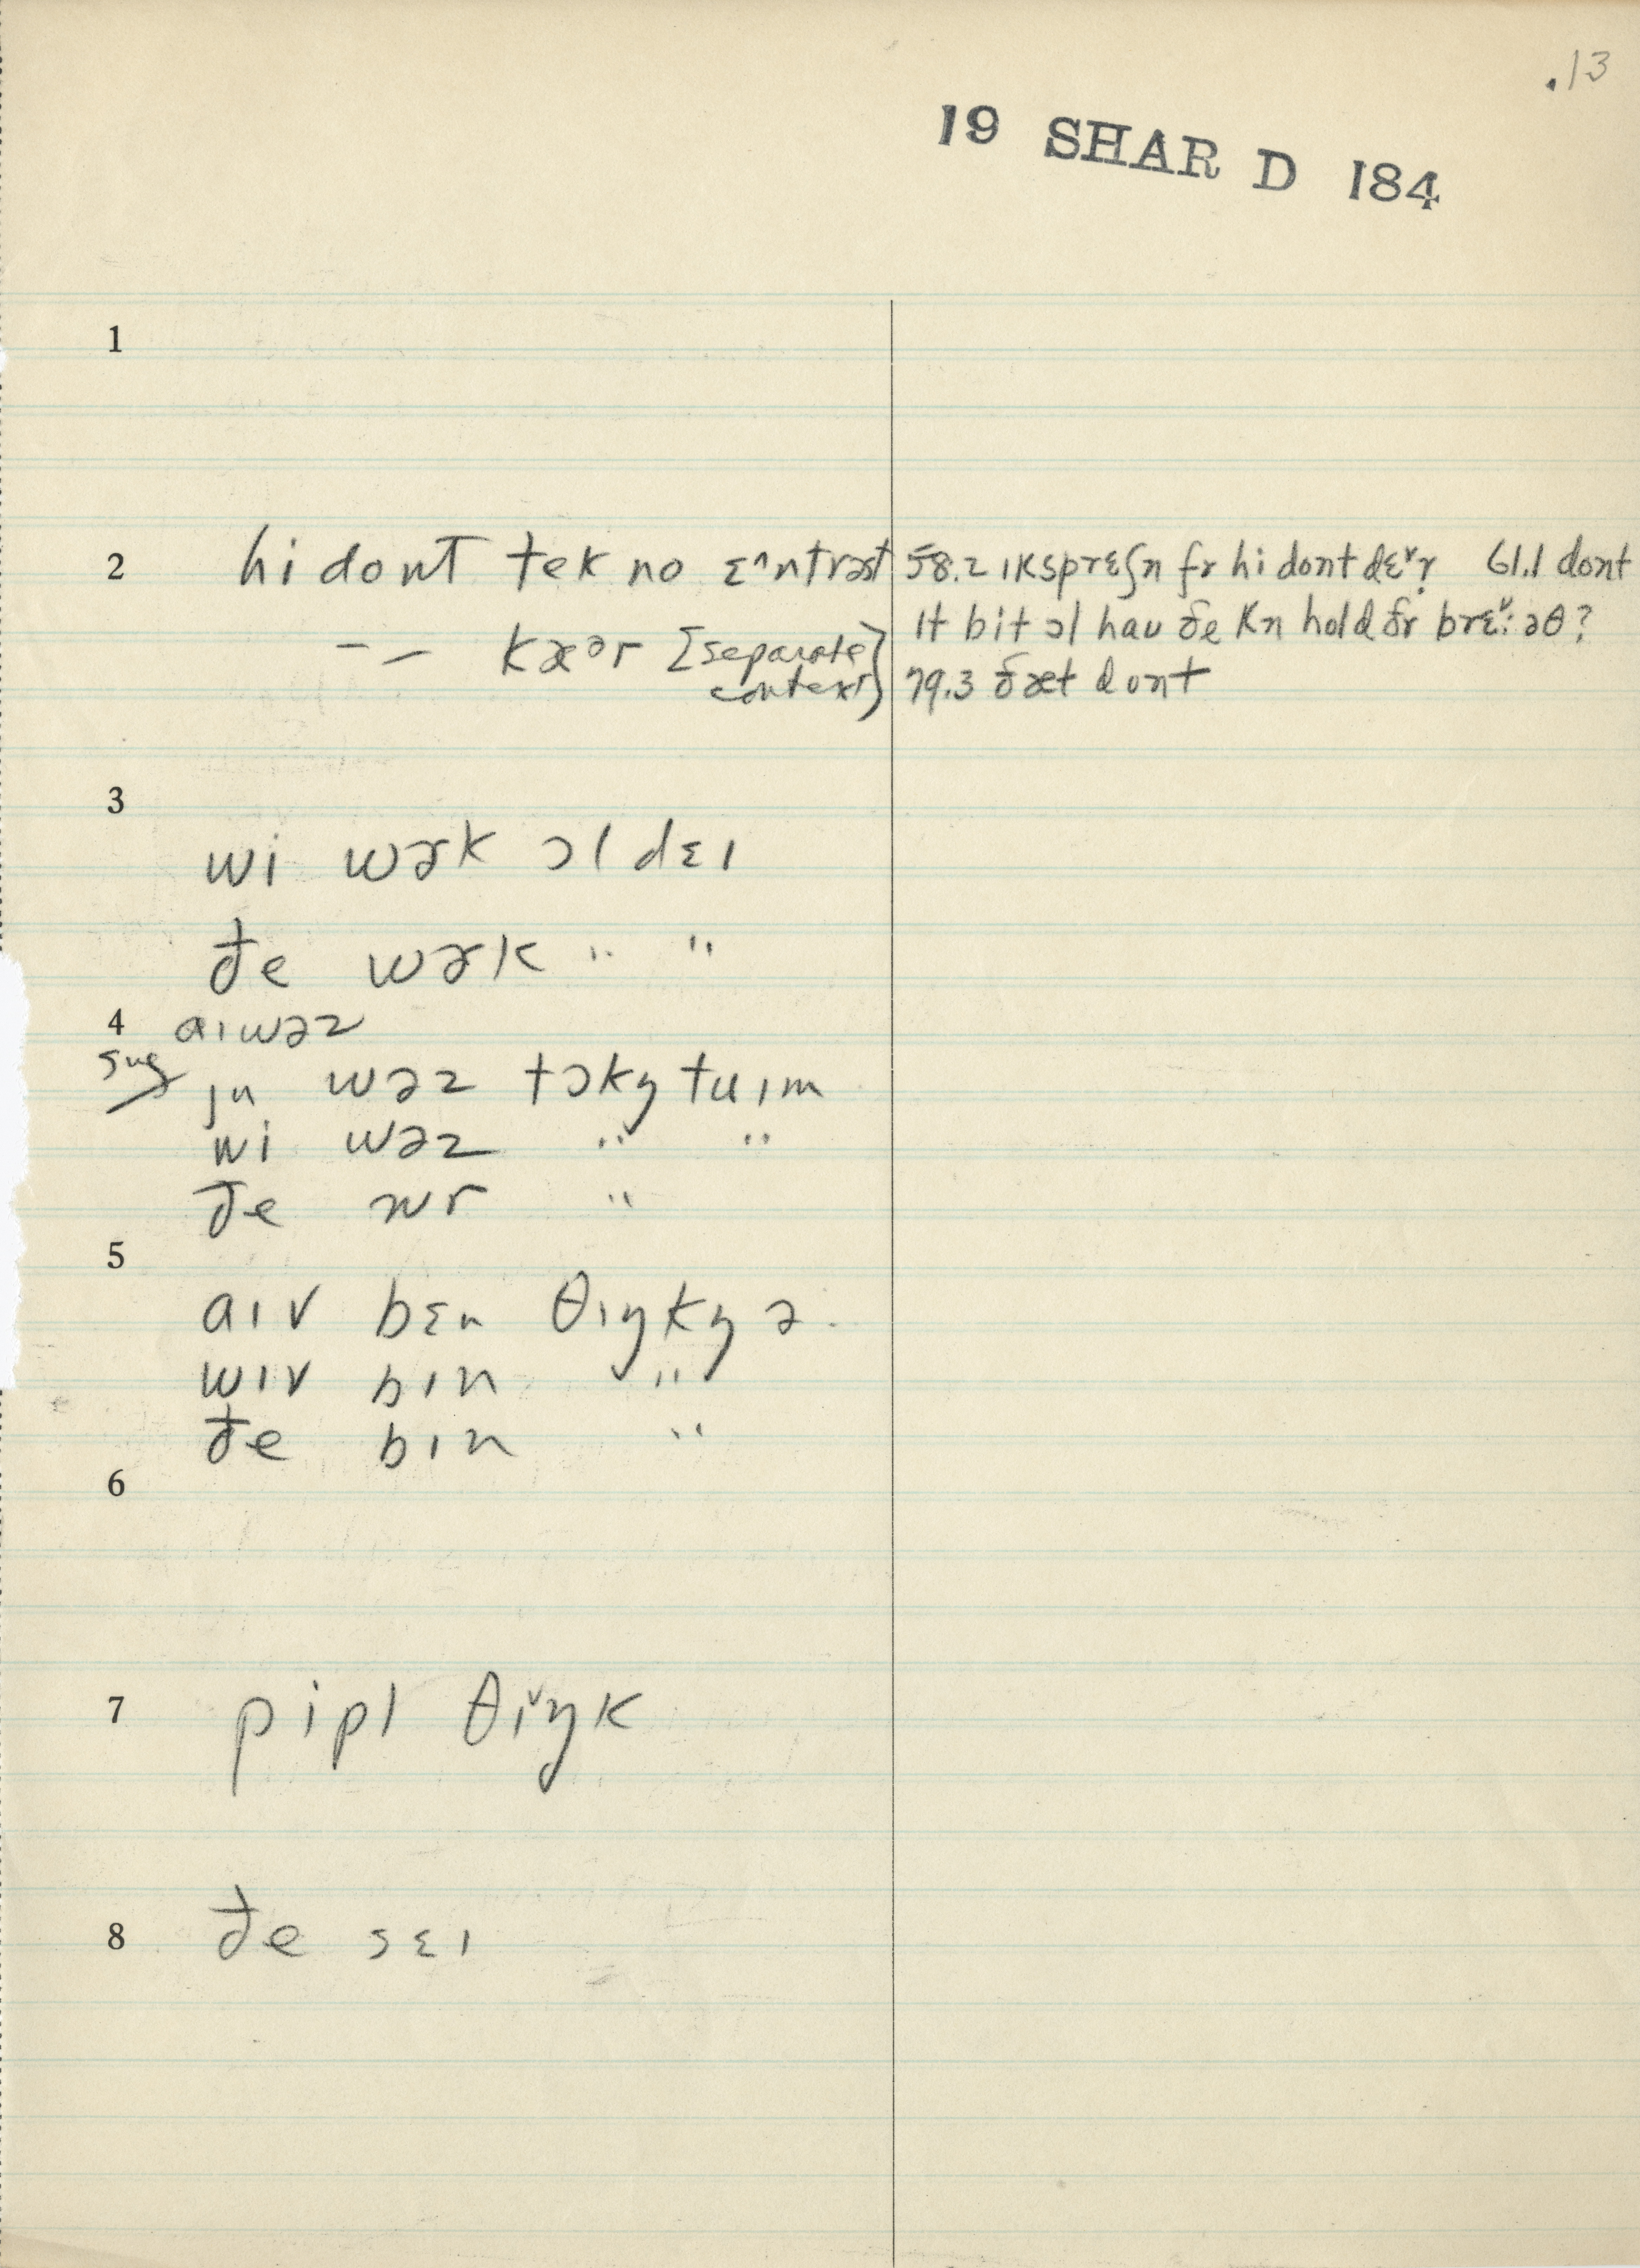 .13
19 SHAR D 184
1
2 hi dont tek no ɛ^ntrəst
58.2 ɪksprɛʃn̩ fr hi dont dɛ˅r̩ 61.1 dont
– – kæᵊr [separate context]
ɪt bit ɔl hau ðe kn̩ hold ðr brɛ˅: əθ?
79.3 ðæt dont
3
wi wɚk ɔl dɛɪ
ðe wɚk " "
4 aɪ wəz
sug ju wəz tɔkŋ̩ tu ɪm
wi wəz " "
ðe wr "
5
aɪv bɛn θɪŋkŋ̩ ə.
wɪv bɪn "
ðe bɪn "
6
7 pipl θɪ˅ŋk
8 ðe sɛɪ